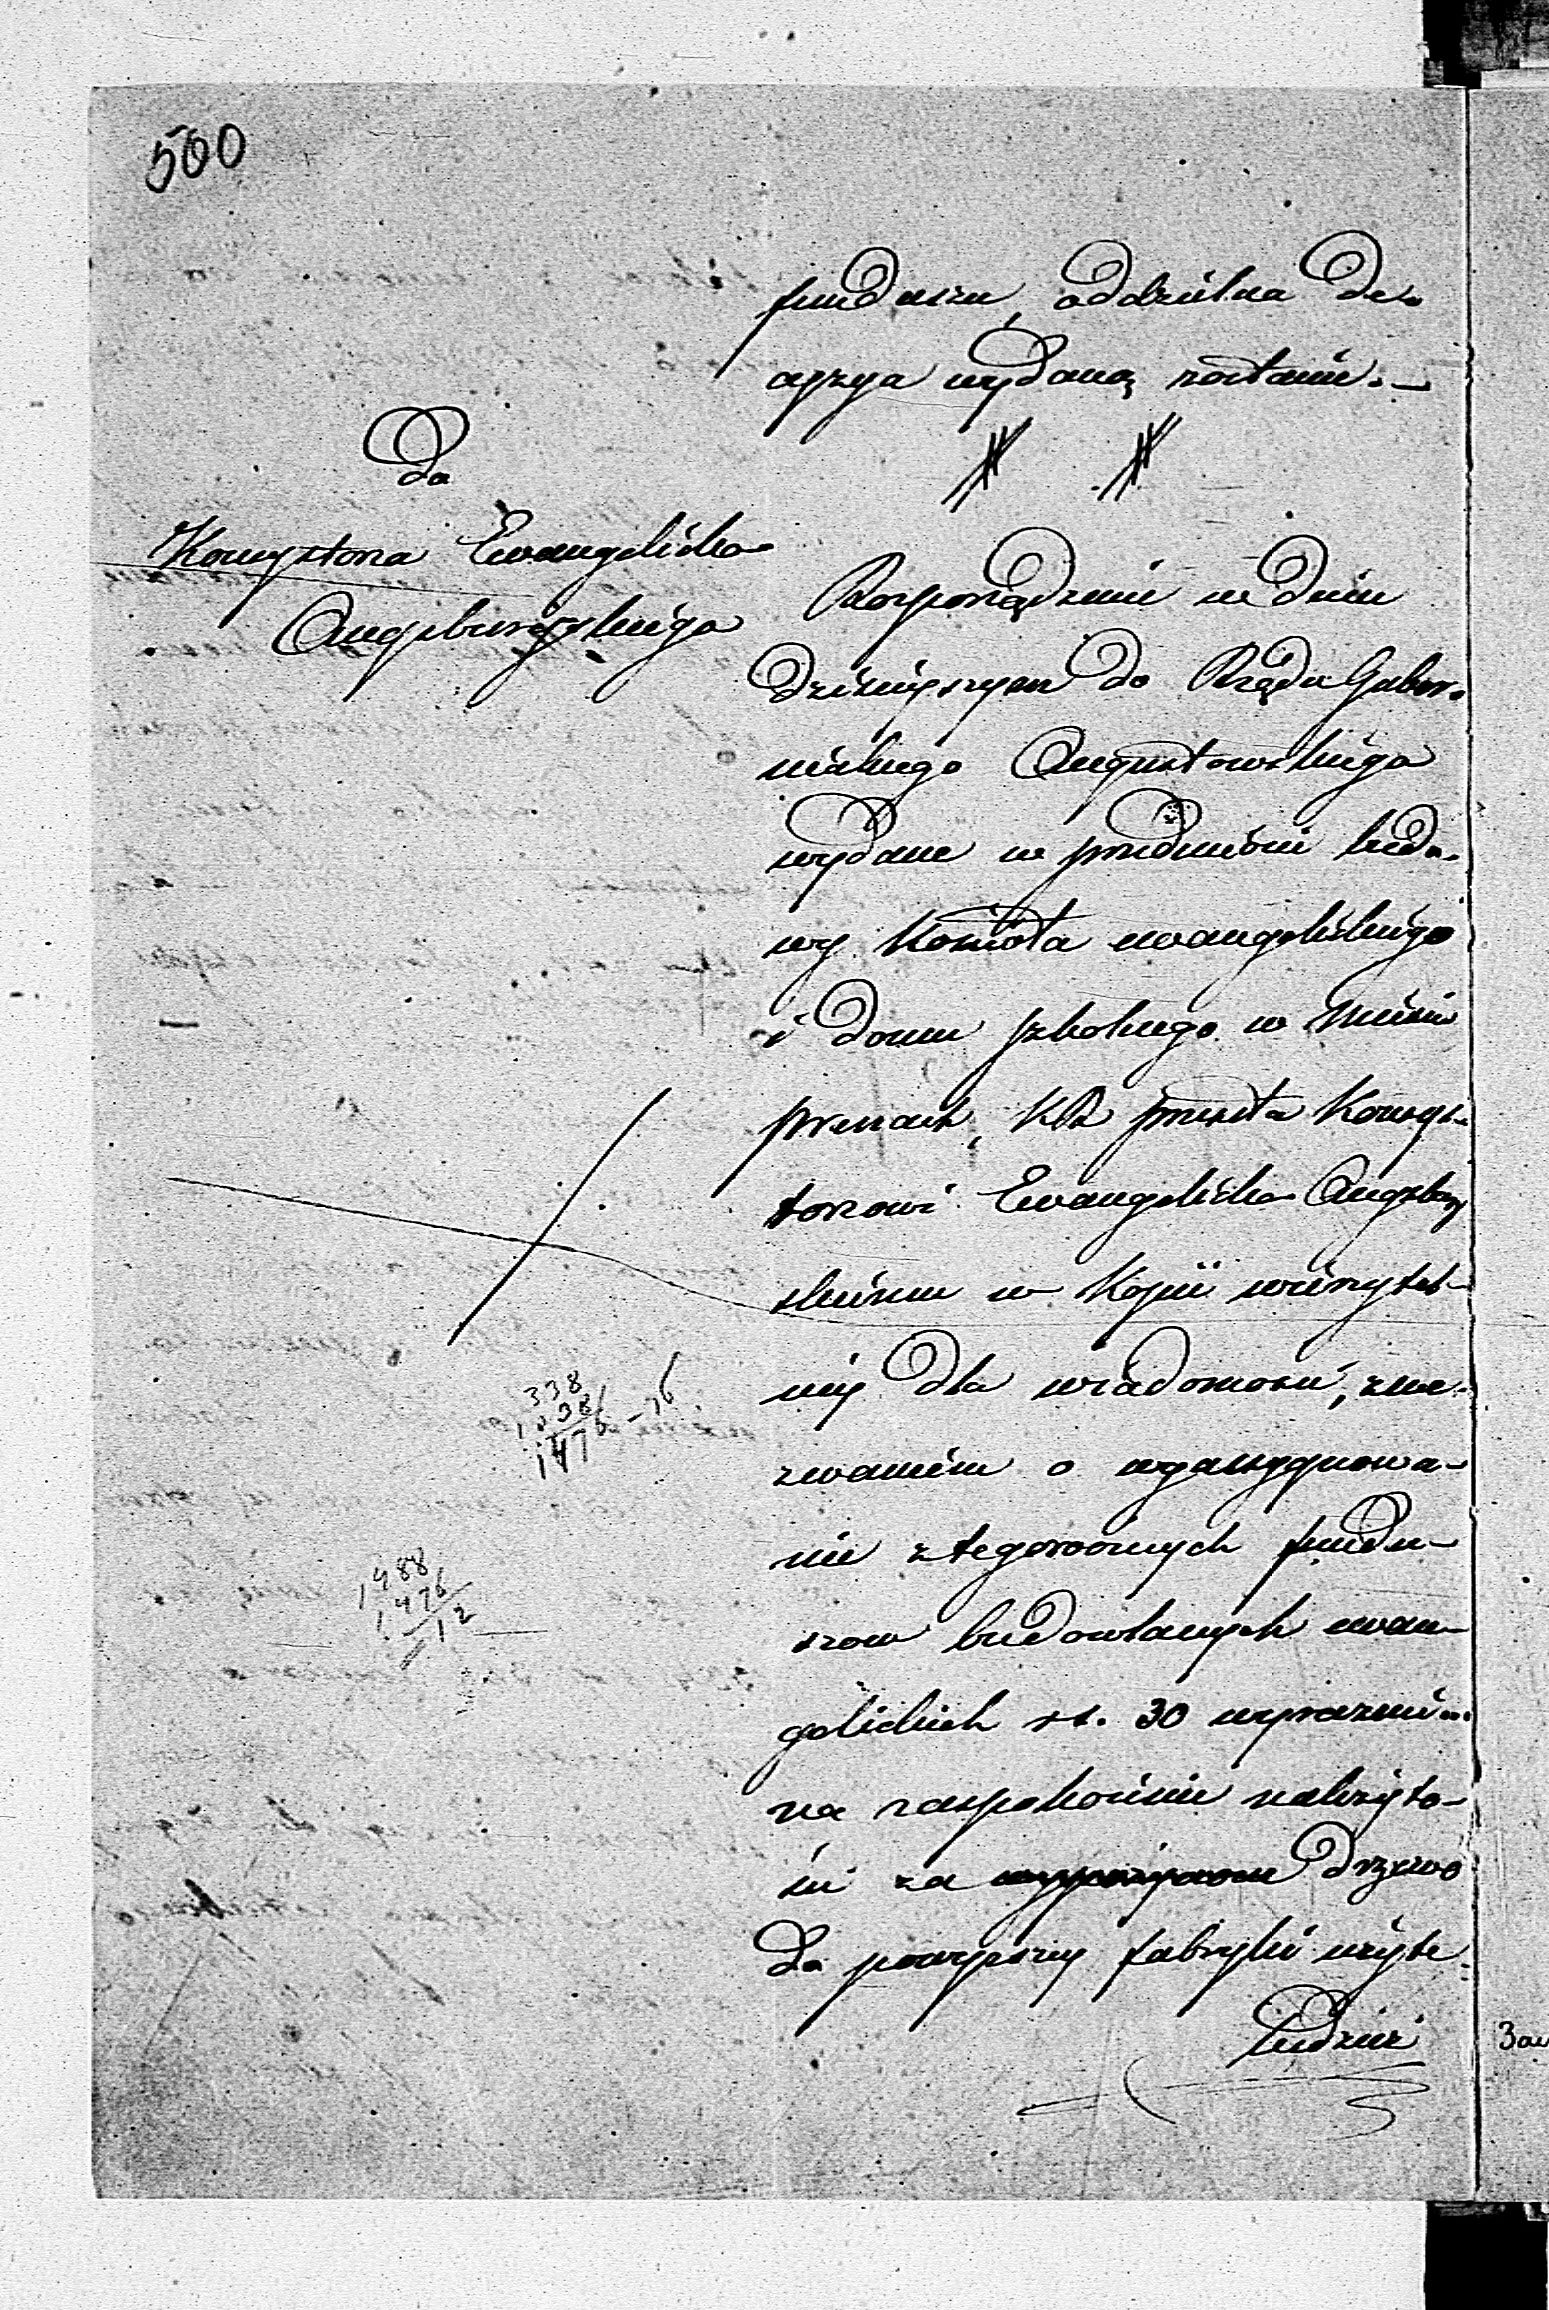 500
funduszu, oddzielna de-
cyzya wydaną zostanie.—
Do
Konsystorza Ewangelicko
Augsburgskiego
Rozporządzenie w dniu
dzisiejszym do Rządu Guber-
nialnego Augustowskiego
wydane w przedmiocie budo-
wy Kościoła ewangelickiego
i domu szkolnego w Mieście
Prenach, KR przesyła Konsys-
torzowi Ewangelicko Augsbur
skiemu w Kopii wierzytel-
nej dla wiadomości, z we-
zwaniem o wyassygnowa-
nie z tegorocznych fundu-
szow budowlanych ewan-
gelickich rs. 30 wyraźnie
na zaspokojenie należyto-
ści za drzewo
do powyższej fabryki użyte
338
1138
1476 – 76
1988
1476
512
Зак